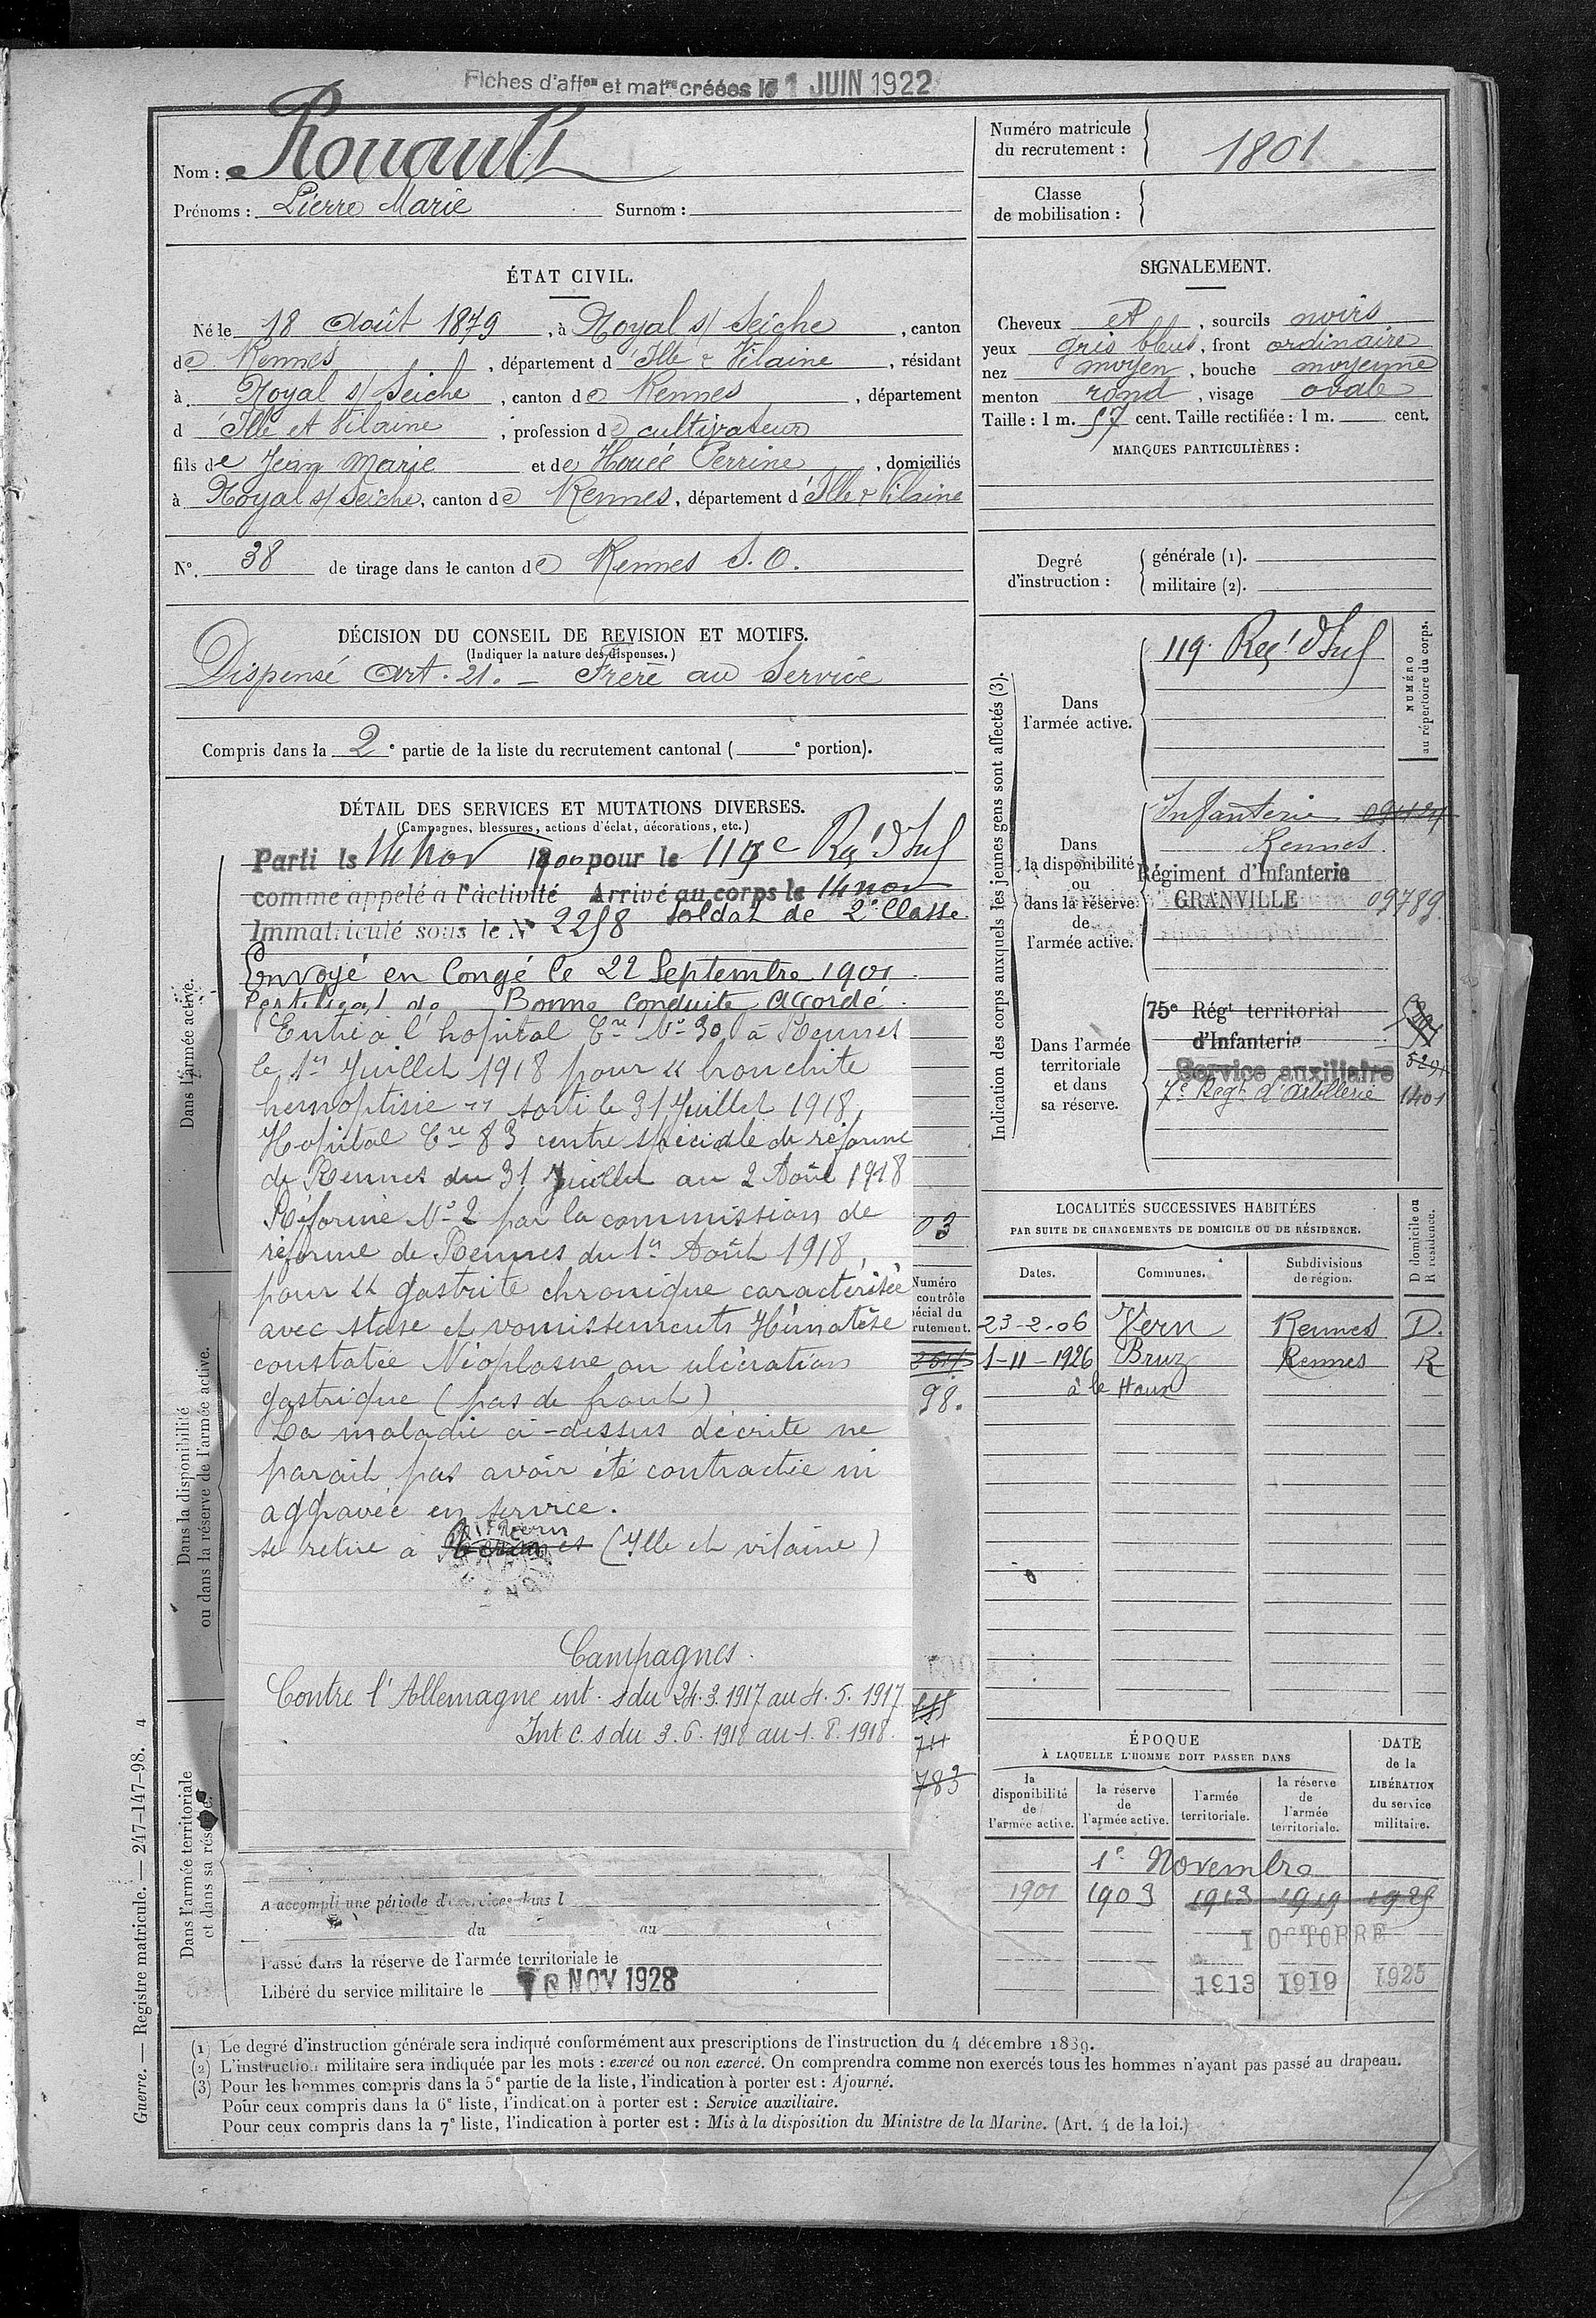 Fiches d'affon et matre créées le 1 JUIN 1922
Nom : Rouault
Prénoms : Pierre Marie Surnom :
Numéro matricule
du recrutement : 1801
Classe
de mobilisation :
ÉTAT CIVIL.
Né le 18 Août 1879, à Noyal s/ Seiche, canton
de Rennes, département d'Ille & Vilaine, résidant
à Noyal s/ Seiche, canton de Rennes, département
d Ille et Vilaine, profession de cultivateur
fils de Jean Marie et de Houée Perrine, domiciliés
à Noyal s/ Seiche, canton de Rennes, département d'Ille & Vilaine
N°. 38 de tirage dans le canton de Rennes S. O.
SIGNALEMENT.
Cheveux et, sourcils noirs
yeux gris bleus, front ordinaire
nez moyen, bouche moyenne
menton rond, visage ovale
Taille : 1 m. 57 cent. Taille rectifiée : 1 m. cent.
MARQUES PARTICULIÈRES :
Degré
d'instruction :
générale (1).
militaire (2).
DÉCISION DU CONSEIL DE REVISION ET MOTIFS.
(Indiquer la nature des dispenses.)
Dispensé Art. 21. - Frère au Service
Compris dans la 2e partie de la liste du recrutement cantonal ( e portion).
DÉTAIL DES SERVICES ET MUTATIONS DIVERSES.
(Campagnes, blessures, actions d'éclat, décorations, etc.)
Dans l'armée active.
Parti le 14 Nov 1900 pour le 119e Rgt d'Inf
comme appelé à l'activité Arrivé au corps le 14 nov
Immatriculé sous le N° 2258 soldat de 2e Classe
Envoyé en Congé le 22 Septembre 1901
Certificat de Bonne conduite Accordé.
Entré à l'hopital Cre N° 30 à Rennes
le 1er Juillet 1918 pour "bronchite
hemoptisie" sorti le 31 Juillet 1918,
Hopital Cre 83 centre spéciale de réforme
de Rennes du 31 Juillet au 2 Août 1918
Réformé N° 2 par la commission de
réforme de Rennes du 1er Août 1918,
pour "gastrite chronique caractérisée
avec stase et vomissements Hématèse
constatée Néoplasme ou ulcération
gastrique (pas de front)
La maladie ci-dessus décrite ne
parait pas avoir été contractée ni
aggravée en service.
se retire à Vern (Ille et vilaine)
Campagnes.
Contre l'Allemagne int. s du 24.3.1917 au 4.5.1917
Int c. s du 3.6.1918 au 1.8.1918.
03
Numéro
contrôle
spécial du
recrutement.
98.
711
783
Dans la disponibilité
ou dans la réserve de l'armée active.
Dans l'armée territoriale
et dans sa réserve.
A accompli une période d'exercices dans l
du au
Passé dans la réserve de l'armée territoriale le
Libéré du service militaire le 10 NOV 1928
Indication des corps auxquels les jeunes gens sont affectés (3).
NUMÉRO
au répertoire du corps.
Dans
l'armée active.
119. Regt d'Inf
Dans
la disponibilité
ou
dans la réserve
de
l'armée active.
Infanterie
Rennes
Régiment d'Infanterie
GRANVILLE 09789
Dans l'armée
territoriale
et dans
sa réserve.
75e Régt territorial
d'Infanterie
Service auxiliaire 5291
7e Regt d'Artillerie 1401
LOCALITÉS SUCCESSIVES HABITÉES
PAR SUITE DE CHANGEMENTS DE DOMICILE OU DE RÉSIDENCE.
Dates. Communes. Subdivisions
de région. D domicile ou
R résidence.
23-2-06 Vern Rennes D.
1-11-1926 Bruz Rennes R
à le Haux
ÉPOQUE
À LAQUELLE L'HOMME DOIT PASSER DANS
DATE
de la
LIBÉRATION
du service
militaire.
la
disponibilité
de
l'armée active.
la réserve
de
l'armée active.
l'armée
territoriale.
la réserve
de
l'armée
territoriale.
1er Novembre
1901 1903 1913 1919 1925
1 OCTOBRE
1913 1919 1925
(1) Le degré d'instruction générale sera indiqué conformément aux prescriptions de l'instruction du 4 décembre 1889.
(2) L'instruction militaire sera indiquée par les mots : exercé ou non exercé. On comprendra comme non exercés tous les hommes n'ayant pas passé au drapeau.
(3) Pour les hommes compris dans la 5e partie de la liste, l'indication à porter est : Ajourné.
Pour ceux compris dans la 6e liste, l'indication à porter est : Service auxiliaire.
Pour ceux compris dans la 7e liste, l'indication à porter est : Mis à la disposition du Ministre de la Marine. (Art. 4 de la loi.)
Guerre. — Registre matricule. — 247-147-98. 4